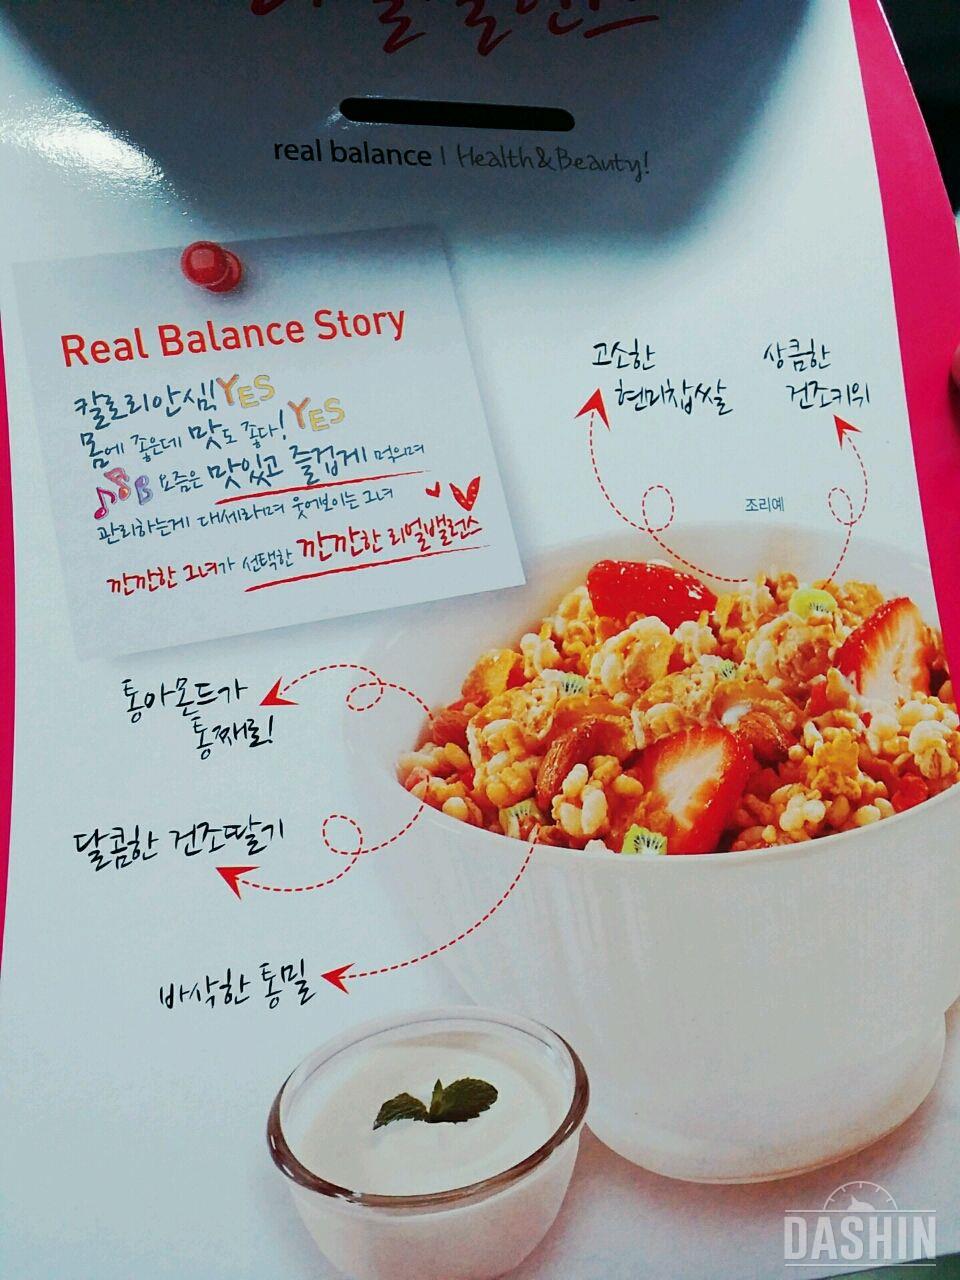 real balance | Health & Beauty!
Real Balance Story
칼로리안심! YES
몸에 좋은데 맛도 좋다! YES
요즘은 맛있고 즐겁게 먹으며
관리하는게 대세라며 웃어보이는 그녀
깐깐한 그녀가 선택한 깐깐한 리얼밸런스
고소한
현미찹쌀
상큼한
건조키위
조리예
통아몬드가
통째로!
달콤한 건조딸기
바삭한 통밀
DASHIN